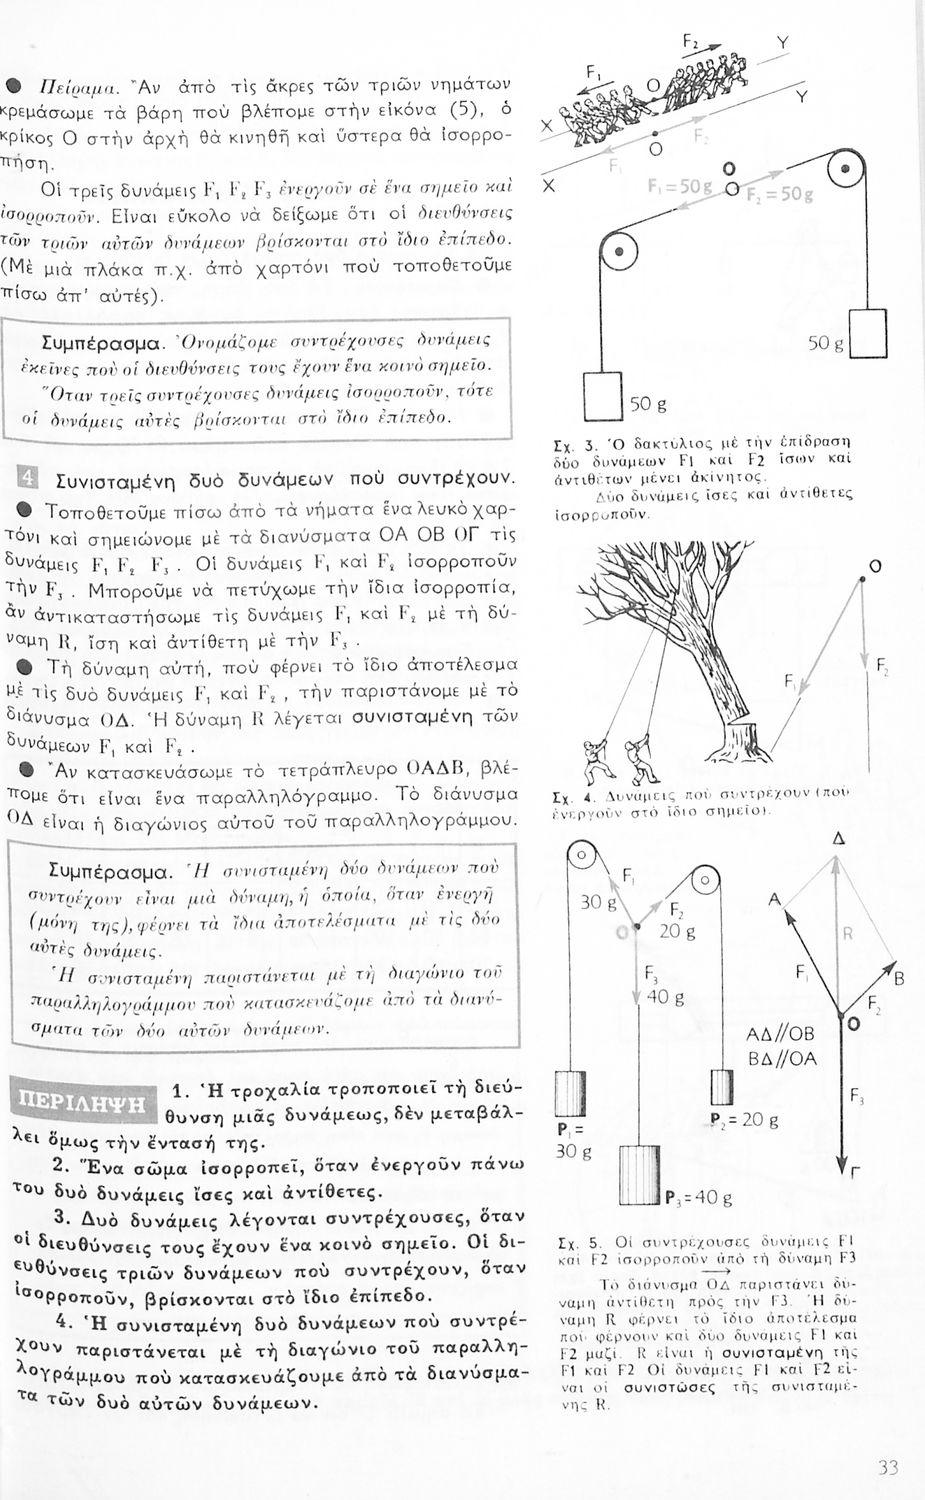 ● Πείραμα. Ἂν ἀπὸ τὶς ἄκρες τῶν τριῶν νημάτων
κρεμάσωμε τὰ βάρη ποὺ βλέπομε στὴν εἰκόνα (5), ὁ
κρίκος Ο στὴν ἀρχὴ θὰ κινηθῆ καὶ ὕστερα θὰ ἰσορρο-
πήση.
Οἱ τρεῖς δυνάμεις F₁ F₂ F₃ ἐνεργοῦν σὲ ἕνα σημεῖο καὶ
ἰσορροποῦν. Εἶναι εὔκολο νὰ δείξωμε ὅτι οἱ διευθύνσεις
τῶν τριῶν αὐτῶν δυνάμεων βρίσκονται στὸ ἴδιο ἐπίπεδο.
(Μὲ μιὰ πλάκα π.χ. ἀπὸ χαρτόνι ποὺ τοποθετοῦμε
πίσω ἀπ' αὐτές).
Συμπέρασμα. Ὀνομάζομε συντρέχουσες δυνάμεις
ἐκεῖνες ποὺ οἱ διευθύνσεις τους ἔχουν ἕνα κοινὸ σημεῖο.
Ὅταν τρεῖς συντρέχουσες δυνάμεις ἰσορροποῦν, τότε
οἱ δυνάμεις αὐτὲς βρίσκονται στὸ ἴδιο ἐπίπεδο.
4 Συνισταμένη δυὸ δυνάμεων ποὺ συντρέχουν.
● Τοποθετοῦμε πίσω ἀπὸ τὰ νήματα ἕνα λευκὸ χαρ-
τόνι καὶ σημειώνομε μὲ τὰ διανύσματα ΟΑ ΟΒ ΟΓ τὶς
δυνάμεις F₁ F₂ F₃ . Οἱ δυνάμεις F₁ καὶ F₂ ἰσορροποῦν
τὴν F₃ . Μποροῦμε νὰ πετύχωμε τὴν ἴδια ἰσορροπία,
ἂν ἀντικαταστήσωμε τὶς δυνάμεις F₁ καὶ F₂ μὲ τὴ δύ-
ναμη R, ἴση καὶ ἀντίθετη μὲ τὴν F₃ .
● Τὴ δύναμη αὐτή, ποὺ φέρνει τὸ ἴδιο ἀποτέλεσμα
μὲ τὶς δυὸ δυνάμεις F₁ καὶ F₂ , τὴν παριστάνομε μὲ τὸ
διάνυσμα ΟΔ. Ἡ δύναμη R λέγεται συνισταμένη τῶν
δυνάμεων F₁ καὶ F₂ .
● Ἂν κατασκευάσωμε τὸ τετράπλευρο ΟΑΔΒ, βλέ-
πομε ὅτι εἶναι ἕνα παραλληλόγραμμο. Τὸ διάνυσμα
ΟΔ εἶναι ἡ διαγώνιος αὐτοῦ τοῦ παραλληλογράμμου.
Συμπέρασμα. Ἡ συνισταμένη δύο δυνάμεων ποὺ
συντρέχουν εἶναι μιὰ δύναμη, ἡ ὁποία, ὅταν ἐνεργῆ
(μόνη της), φέρνει τὰ ἴδια ἀποτελέσματα μὲ τὶς δύο
αὐτὲς δυνάμεις.
Ἡ συνισταμένη παριστάνεται μὲ τὴ διαγώνιο τοῦ
παραλληλογράμμου ποὺ κατασκευάζομε ἀπὸ τὰ διανύ-
σματα τῶν δύο αὐτῶν δυνάμεων.
ΠΕΡΙΛΗΨΗ
1. Ἡ τροχαλία τροποποιεῖ τὴ διεύ-
θυνση μιᾶς δυνάμεως, δὲν μεταβάλ-
λει ὅμως τὴν ἔντασή της.
2. Ἕνα σῶμα ἰσορροπεῖ, ὅταν ἐνεργοῦν πάνω
του δυὸ δυνάμεις ἴσες καὶ ἀντίθετες.
3. Δυὸ δυνάμεις λέγονται συντρέχουσες, ὅταν
οἱ διευθύνσεις τους ἔχουν ἕνα κοινὸ σημεῖο. Οἱ δι-
ευθύνσεις τριῶν δυνάμεων ποὺ συντρέχουν, ὅταν
ἰσορροποῦν, βρίσκονται στὸ ἴδιο ἐπίπεδο.
4. Ἡ συνισταμένη δυὸ δυνάμεων ποὺ συντρέ-
χουν παριστάνεται μὲ τὴ διαγώνιο τοῦ παραλλη-
λογράμμου ποὺ κατασκευάζουμε ἀπὸ τὰ διανύσμα-
τα τῶν δυὸ αὐτῶν δυνάμεων.
F₂
Y
F₁
O
Y
X
F₂
O
F₁
X
O
F₁=50g
O F₂=50g
50 g
50 g
Σχ. 3. Ὁ δακτύλιος μὲ τὴν ἐπίδραση
δύο δυνάμεων F1 καὶ F2 ἴσων καὶ
ἀντιθέτων μένει ἀκίνητος.
Δύο δυνάμεις ἴσες καὶ ἀντίθετες
ἰσορροποῦν.
O
F₁
F₂
Σχ. 4. Δυνάμεις ποὺ συντρέχουν (ποὺ
ἐνεργοῦν στὸ ἴδιο σημεῖο).
Δ
F₁
30 g
F₂
20 g
O
F₃
40 g
A
R
F₁
B
F₂
O
ΑΔ//ΟΒ
ΒΔ//ΟΑ
F₃
Γ
P₁=
30 g
P₂=20 g
P₃=40 g
Σχ. 5. Οἱ συντρέχουσες δυνάμεις F1
καὶ F2 ἰσορροποῦν ἀπὸ τὴ δύναμη F3
Τὸ διάνυσμα ΟΔ παριστάνει δύ-
ναμη ἀντίθετη πρὸς τὴν F3. Ἡ δύ-
ναμη R φέρνει τὸ ἴδιο ἀποτέλεσμα
ποὺ φέρνουν καὶ δύο δυνάμεις F1 καὶ
F2 μαζί. R εἶναι ἡ συνισταμένη τῆς
F1 καὶ F2 Οἱ δυνάμεις F1 καὶ F2 εἶ-
ναι οἱ συνιστῶσες τῆς συνισταμέ-
νης R.
33